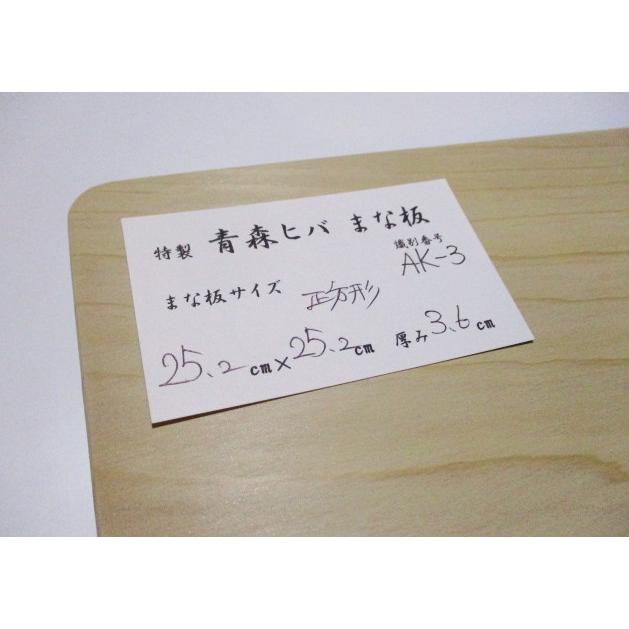 特製 青森ヒバ まな板
識別番号
AK-3
まな板サイズ 正方形
25.2cm×25.2cm 厚み3.6cm